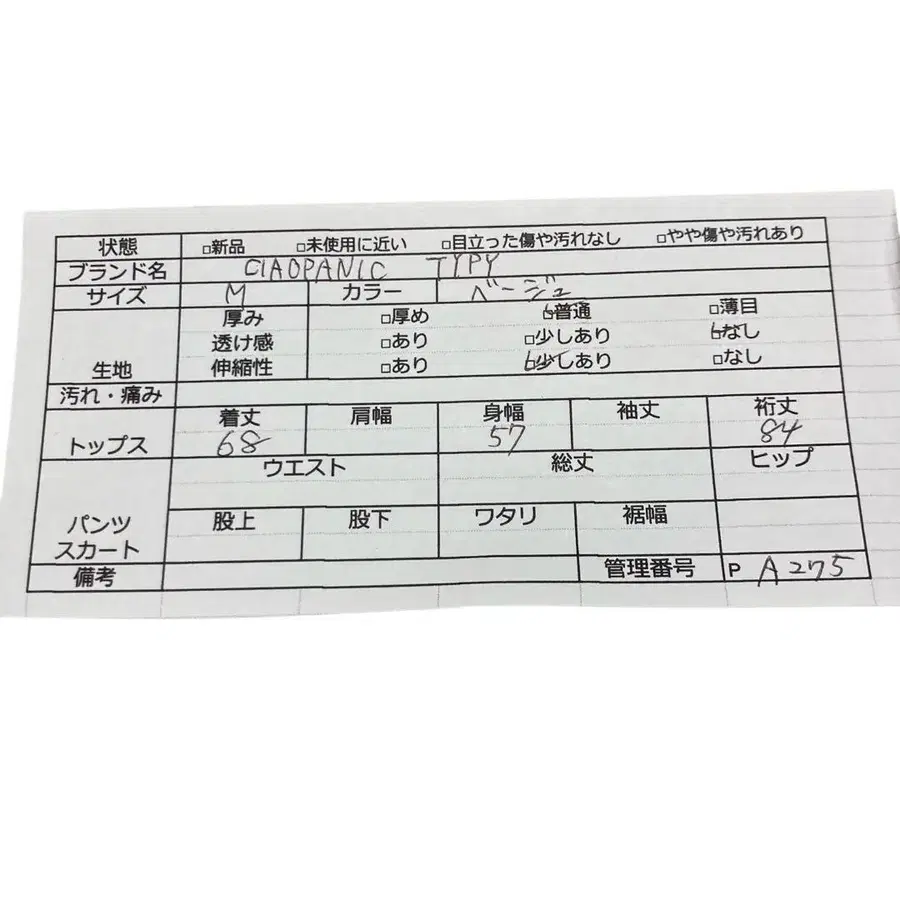 状態 □新品 □未使用に近い □目立った傷や汚れなし □やや傷や汚れあり
ブランド名 CIAOPANIC TYPY
サイズ M カラー ベージュ
厚み □厚め □普通 □薄目
透け感 □あり □少しあり □なし
生地 伸縮性 □あり □少しあり □なし
汚れ・痛み
着丈 肩幅 身幅 袖丈 裄丈
トップス 68 57 84
ウエスト 総丈 ヒップ
パンツ 股上 股下 ワタリ 裾幅
スカート
備考 管理番号 P A275